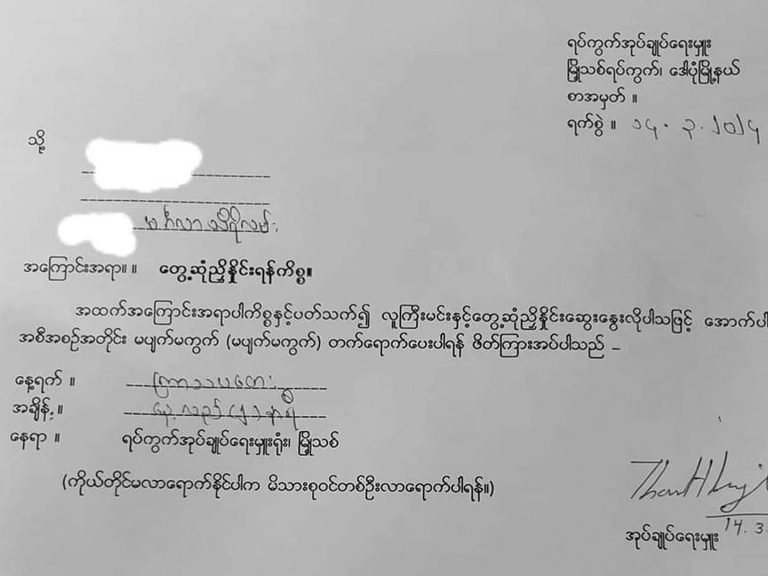 ရပ်ကွက်အုပ်ချုပ်ရေးမှူး
မြို့သစ်ရပ်ကွက်၊ ဒေါပုံမြို့နယ်
စာအမှတ် ။
ရက်စွဲ ။ ၁၄.၃.၂၀၂၄
သို့
မင်္ဂလာသီရိလမ်း
အကြောင်းအရာ။ ။ တွေ့ဆုံညှိနှိုင်းရန်ကိစ္စ။
အထက်အကြောင်းအရာပါကိစ္စနှင့်ပတ်သက်၍ လူကြီးမင်းနှင့်တွေ့ဆုံညှိနှိုင်းဆွေးနွေးလိုပါသဖြင့် အောက်ပါ
အစီအစဉ်အတိုင်း မပျက်မကွက် (မပျက်မကွက်) တက်ရောက်ပေးပါရန် ဖိတ်ကြားအပ်ပါသည် –
နေ့ရက် ။ ကြာသပတေး
အချိန် ။ နေ့လည် (၂) နာရီ
နေရာ ။ ရပ်ကွက်အုပ်ချုပ်ရေးမှူးရုံး၊ မြို့သစ်
(ကိုယ်တိုင်မလာရောက်နိုင်ပါက မိသားစုဝင်တစ်ဦးလာရောက်ပါရန်။)
14.3
အုပ်ချုပ်ရေးမှူး